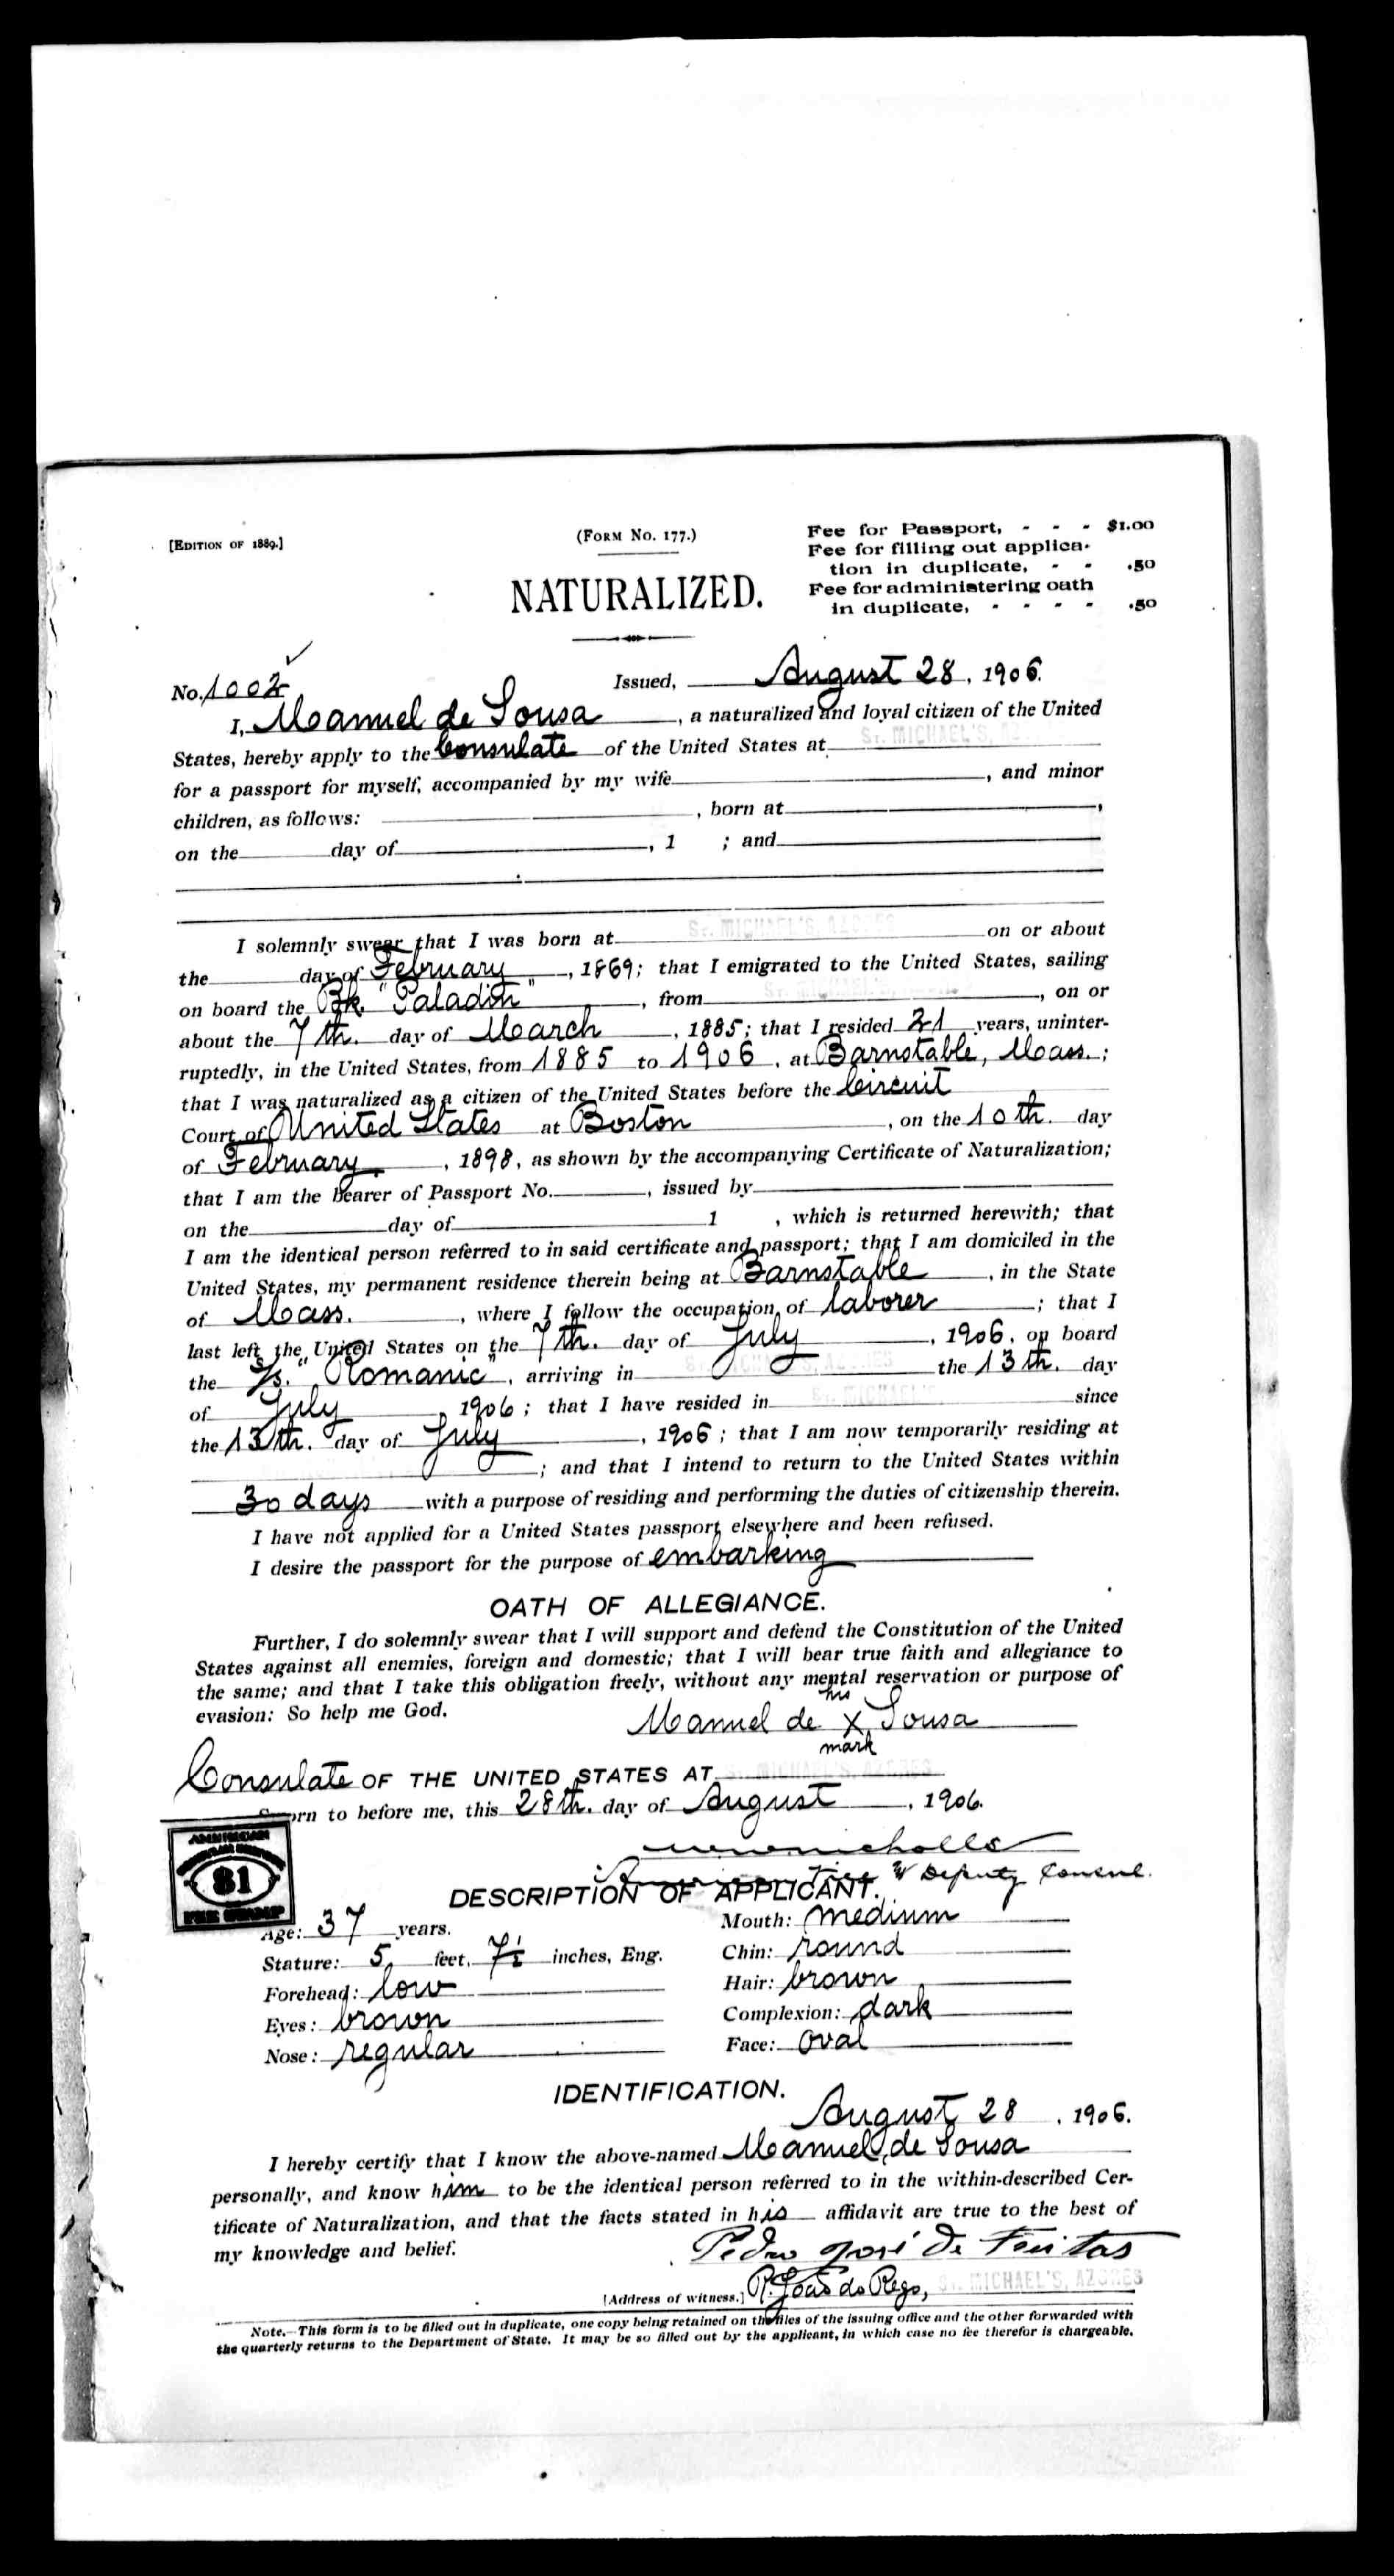 [EDITION OF 1889.]
(FORM NO. 177.)
Fee for Passport, - - - $1.00
Fee for filling out applica-
tion in duplicate, - - .50
Fee for administering oath
in duplicate, - - - - .50
NATURALIZED.
No. 1002
Issued, August 28, 1906.
I, Manuel de Sousa, a naturalized and loyal citizen of the United
States, hereby apply to the Consulate of the United States at ST. MICHAEL'S, AZ
for a passport for myself, accompanied by my wife , and minor
children, as follows: , born at ,
on the day of , 1 ; and
I solemnly swear that I was born at ST. MICHAEL'S, AZORES on or about
the day of February, 1869; that I emigrated to the United States, sailing
on board the Bk. "Paladin", from ST. MICHAEL'S, AZORES, on or
about the 7th. day of March, 1885; that I resided 21 years, uninter-
ruptedly, in the United States, from 1885 to 1906, at Barnstable, Mass.;
that I was naturalized as a citizen of the United States before the Circuit
Court of United States at Boston, on the 10th. day
of February, 1898, as shown by the accompanying Certificate of Naturalization;
that I am the bearer of Passport No. , issued by
on the day of 1 , which is returned herewith; that
I am the identical person referred to in said certificate and passport; that I am domiciled in the
United States, my permanent residence therein being at Barnstable, in the State
of Mass., where I follow the occupation of laborer; that I
last left the United States on the 7th. day of July, 1906, on board
the S/s. "Romanic", arriving in ST. MICHAEL'S, AZORES the 13th. day
of July 1906; that I have resided in ST. MICHAEL'S since
the 13th. day of July, 1906; that I am now temporarily residing at
; and that I intend to return to the United States within
30 days with a purpose of residing and performing the duties of citizenship therein.
I have not applied for a United States passport elsewhere and been refused.
I desire the passport for the purpose of embarking
OATH OF ALLEGIANCE.
Further, I do solemnly swear that I will support and defend the Constitution of the United
States against all enemies, foreign and domestic; that I will bear true faith and allegiance to
the same; and that I take this obligation freely, without any mental reservation or purpose of
evasion: So help me God.
his
Manuel de X Sousa
mark
Consulate OF THE UNITED STATES AT ST. MICHAEL'S, AZORES
Sworn to before me, this 28th. day of August, 1906.
Nicholls
American Vice & Deputy Consul.
AMERICAN
$1
FEE STAMP
DESCRIPTION OF APPLICANT.
Age: 37 years.
Mouth: medium
Stature: 5 feet, 7½ inches, Eng.
Chin: round
Forehead: low
Hair: brown
Eyes: brown
Complexion: dark
Nose: regular
Face: oval
IDENTIFICATION.
August 28, 1906.
I hereby certify that I know the above-named Manuel de Sousa
personally, and know him to be the identical person referred to in the within-described Cer-
tificate of Naturalization, and that the facts stated in his affidavit are true to the best of
my knowledge and belief.
Pedro José de Freitas
[Address of witness.] R. João do Rego, ST. MICHAEL'S, AZORES
Note.—This form is to be filled out in duplicate, one copy being retained on the files of the issuing office and the other forwarded with
the quarterly returns to the Department of State. It may be so filled out by the applicant, in which case no fee therefor is chargeable.